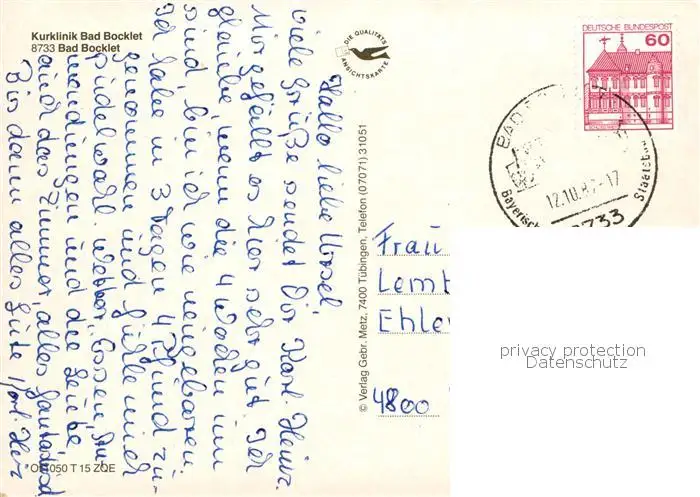 Kurklinik Bad Bocklet
8733 Bad Bocklet
DIE QUALITÄTS
ANSICHTSKARTE
DEUTSCHE BUNDESPOST
60
BAD
12.10.8 -17
Bayerisch Staatsbad
8733
Hallo liebe Ursel,
viele Grüße sendet Dir Karl-Heinz.
Mir gefällt es hier sehr gut. Ich
glaube, wenn die 4 Wochen um
sind, bin ich wie neugeboren.
Ich habe in 3 Tagen 4 Pfund zu-
genommen und fühle mich
pudelwohl. Wetter, Essen, An-
wendungen und die Leute
und das Zimmer, alles
Bis dann alles Gute
© Verlag Gebr. Metz, 7400 Tübingen, Telefon (07071) 31051
Frau
Lemb
Ehle
4800
050 T 15 ZQE
privacy protection
Datenschutz